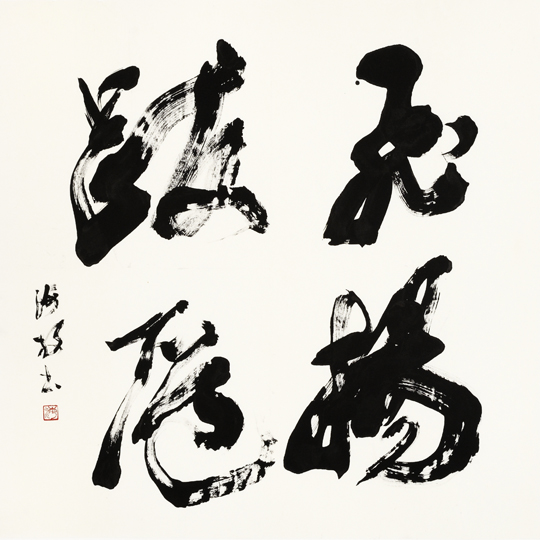 飛揚
跋扈